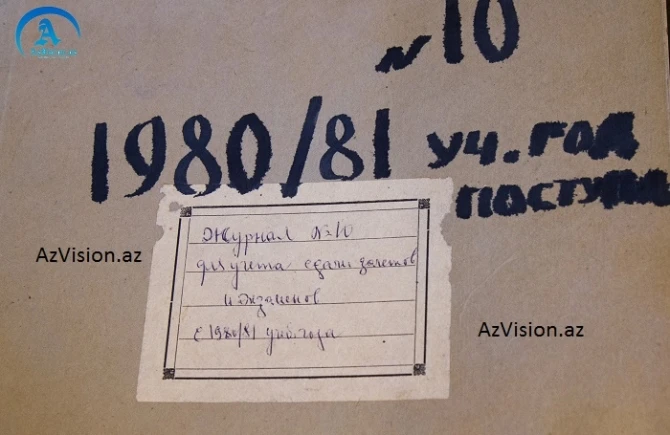 №10
1980/81 уч. год
поступл
Журнал №10
для учета сдачи зачетов
и экзаменов
с 1980/81 уч. года
AzVision.az
AzVision.az